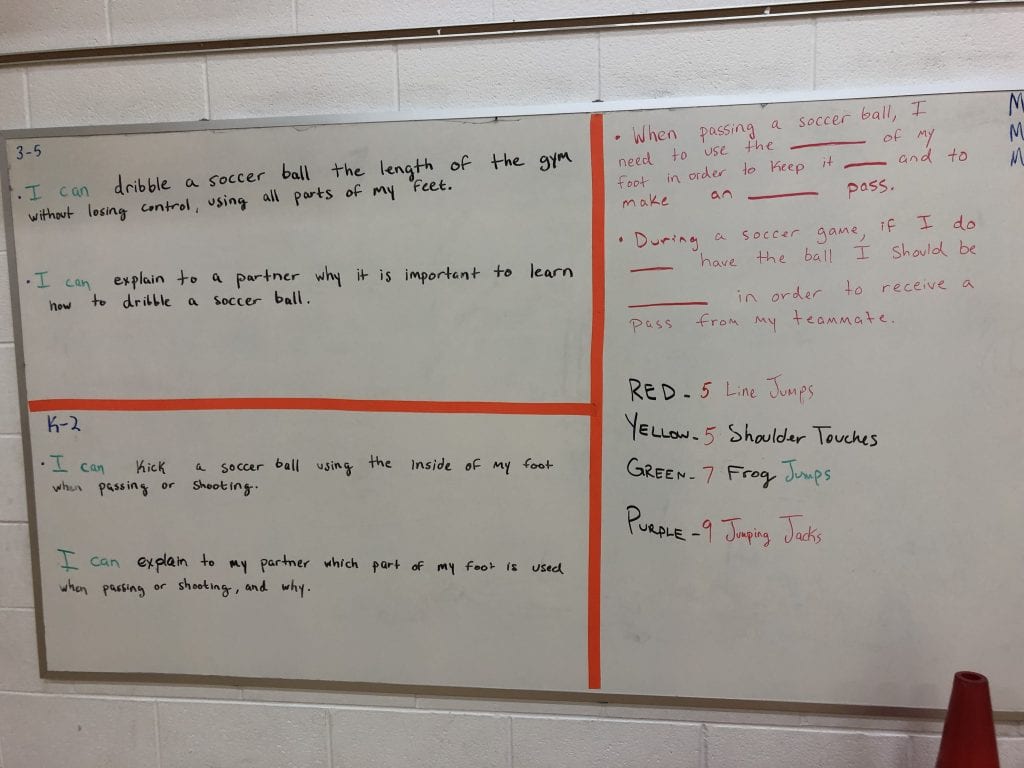 3-5
• I can dribble a soccer ball the length of the gym
without losing control, using all parts of my feet.
• I can explain to a partner why it is important to learn
how to dribble a soccer ball.
K-2
• I can kick a soccer ball using the inside of my foot
when passing or shooting.
I can explain to my partner which part of my foot is used
when passing or shooting, and why.
• When passing a soccer ball, I
need to use the ______ of my
foot in order to keep it ____ and to
make an ______ pass.
• During a soccer game, if I do
____ have the ball I should be
______ in order to receive a
pass from my teammate.
RED - 5 Line Jumps
YELLOW - 5 Shoulder Touches
GREEN - 7 Frog Jumps
PURPLE - 9 Jumping Jacks
M
M
M